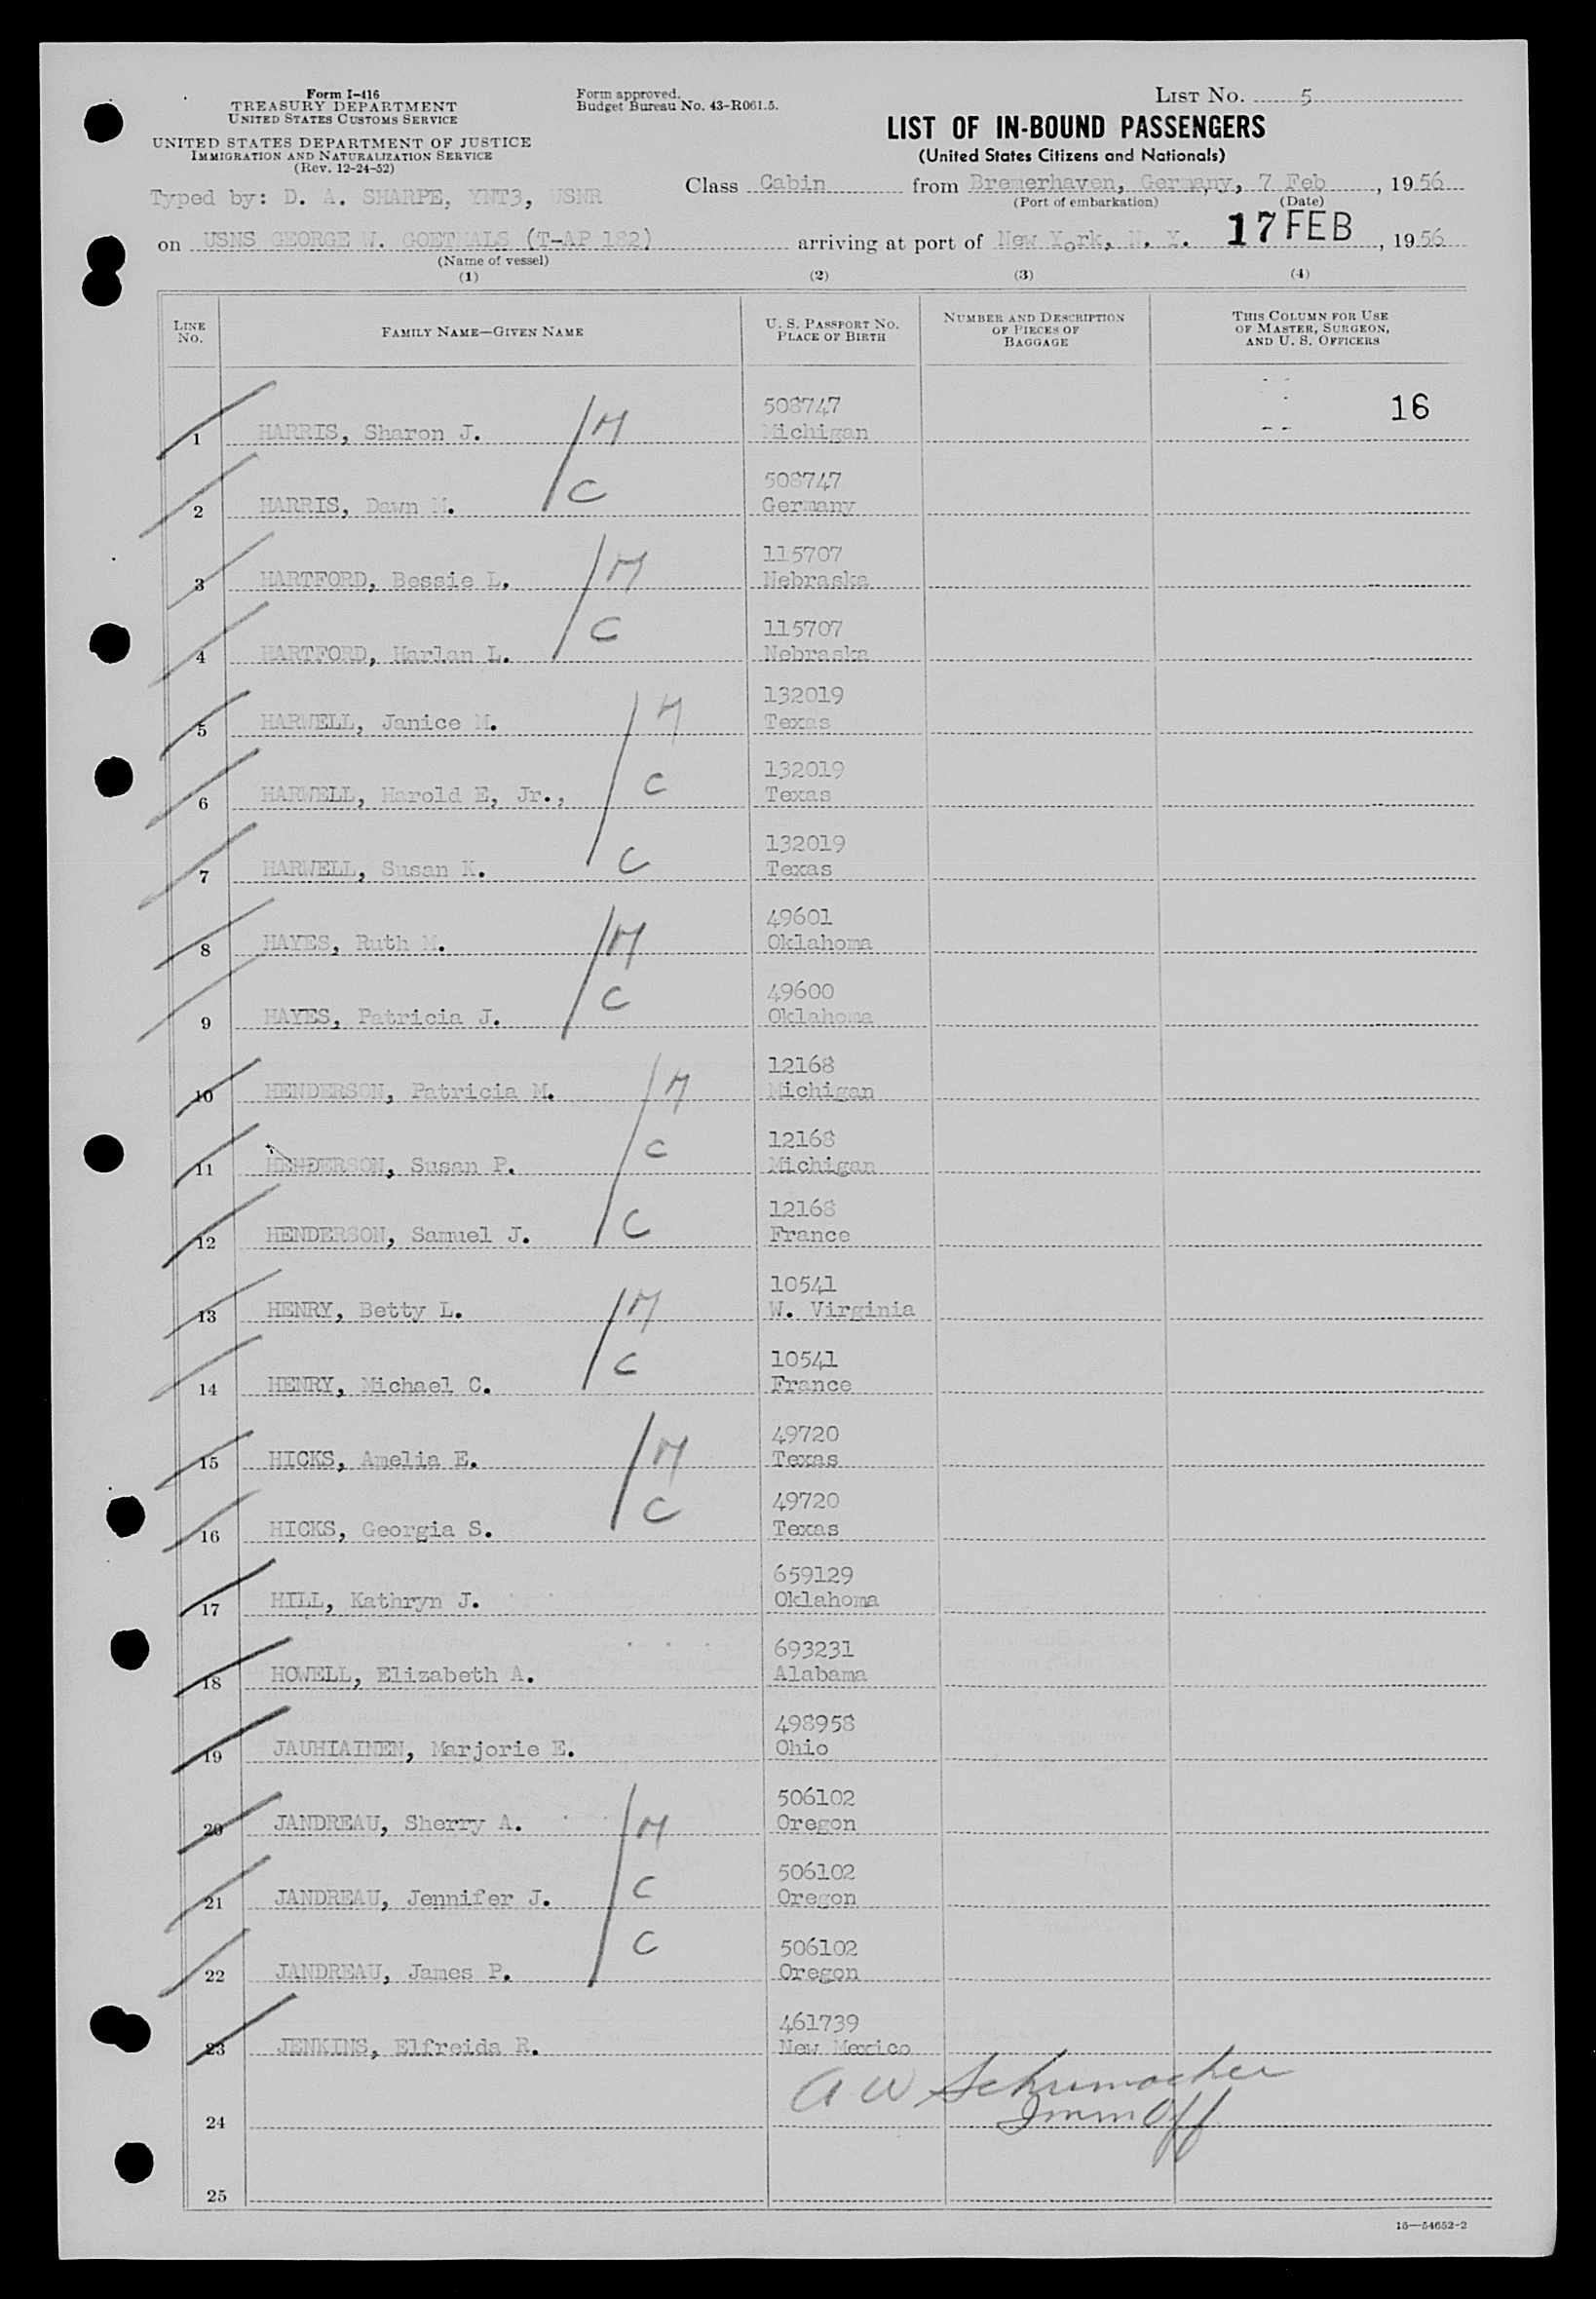 Form I-416
TREASURY DEPARTMENT
UNITED STATES CUSTOMS SERVICE
UNITED STATES DEPARTMENT OF JUSTICE
IMMIGRATION AND NATURALIZATION SERVICE
(Rev. 12-24-52)
Form approved.
Budget Bureau No. 43-R061.5.
LIST NO. 5
LIST OF IN-BOUND PASSENGERS
(United States Citizens and Nationals)
Typed by: D. A. SHARPE, YNT3, USNR
Class Cabin from Bremerhaven, Germany, 7 Feb, 1956
(Port of embarkation) (Date)
on USNS GEORGE W. GOETHALS (T-AP 182) arriving at port of New York, N. Y. 17 FEB, 1956
(Name of vessel)
(1) (2) (3) (4)
LINE NO. FAMILY NAME—GIVEN NAME U. S. PASSPORT NO. PLACE OF BIRTH NUMBER AND DESCRIPTION OF PIECES OF BAGGAGE THIS COLUMN FOR USE OF MASTER, SURGEON, AND U. S. OFFICERS
508747 16
1 HARRIS, Sharon J. M Michigan
508747
2 HARRIS, Dawn M. C Germany
115707
3 HARTFORD, Bessie L. M Nebraska
115707
4 HARTFORD, Harlan L. C Nebraska
132019
5 HARWELL, Janice M. M Texas
132019
6 HARWELL, Harold E, Jr., C Texas
132019
7 HARWELL, Susan K. C Texas
49601
8 HAYES, Ruth M. M Oklahoma
49600
9 HAYES, Patricia J. C Oklahoma
12168
10 HENDERSON, Patricia M. M Michigan
12168
11 HENDERSON, Susan P. C Michigan
12168
12 HENDERSON, Samuel J. C France
10541
13 HENRY, Betty L. M W. Virginia
10541
14 HENRY, Michael C. C France
49720
15 HICKS, Amelia E. M Texas
49720
16 HICKS, Georgia S. C Texas
659129
17 HILL, Kathryn J. Oklahoma
693231
18 HOWELL, Elizabeth A. Alabama
498958
19 JAUHIAINEN, Marjorie E. Ohio
506102
20 JANDREAU, Sherry A. M Oregon
506102
21 JANDREAU, Jennifer J. C Oregon
506102
22 JANDREAU, James P. C Oregon
461739
23 JENKINS, Elfreida R. New Mexico
A W Schumacher
24 Imm Off
25
16—54652-2